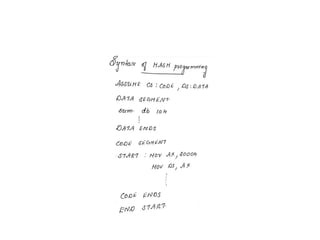 Syntax of MASM programming
ASSUME CS : CODE , DS : DATA
DATA SEGMENT
num db 10H
DATA ENDS
CODE SEGMENT
START : MOV AX, 2000H
MOV DS, AX
CODE ENDS
END START